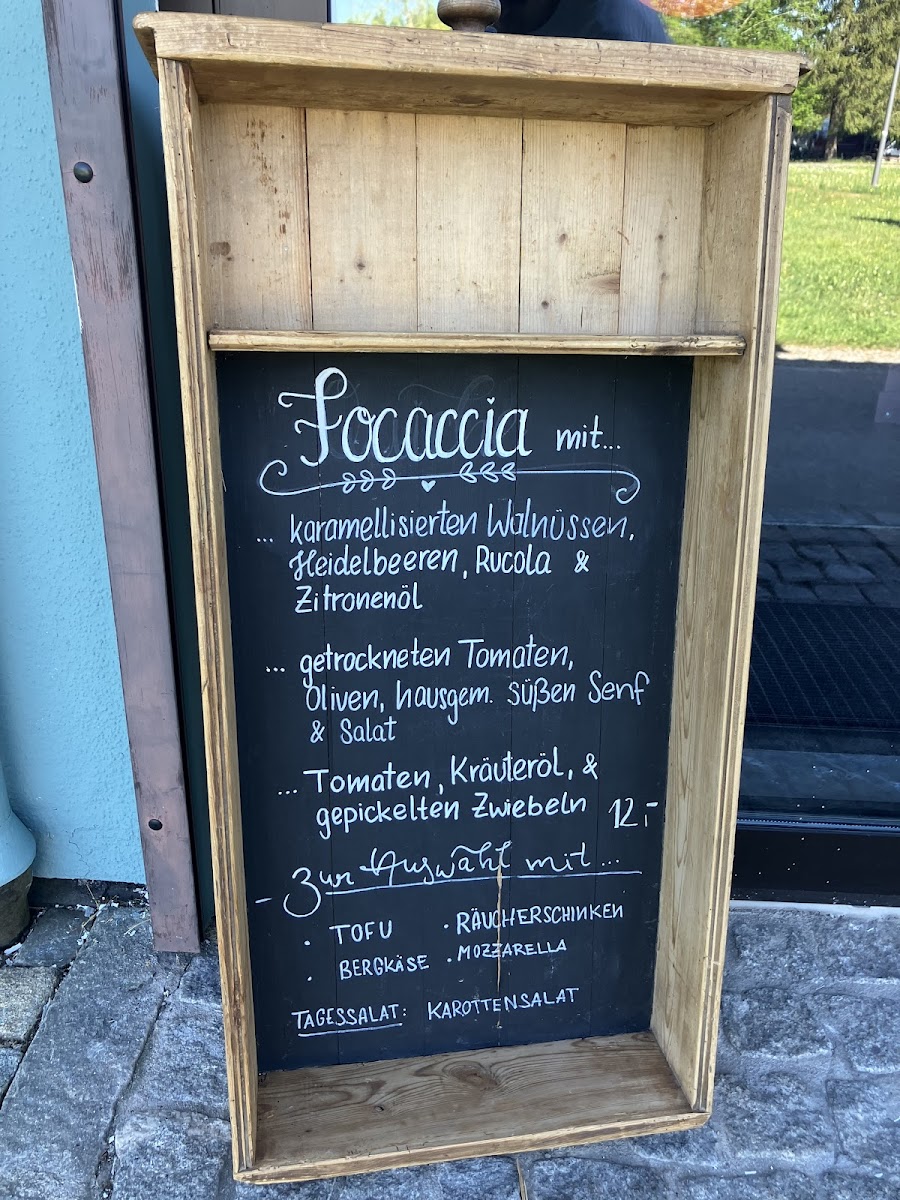 Focaccia mit...
... karamellisierten Walnüssen,
Heidelbeeren, Rucola &
Zitronenöl
... getrockneten Tomaten,
Oliven, hausgem. süßen Senf
& Salat
... Tomaten, Kräuteröl, &
gepickelten Zwiebeln 12,-
- Zur Auswahl mit...
· TOFU · RÄUCHERSCHINKEN
· BERGKÄSE · MOZZARELLA
TAGESSALAT: KAROTTENSALAT